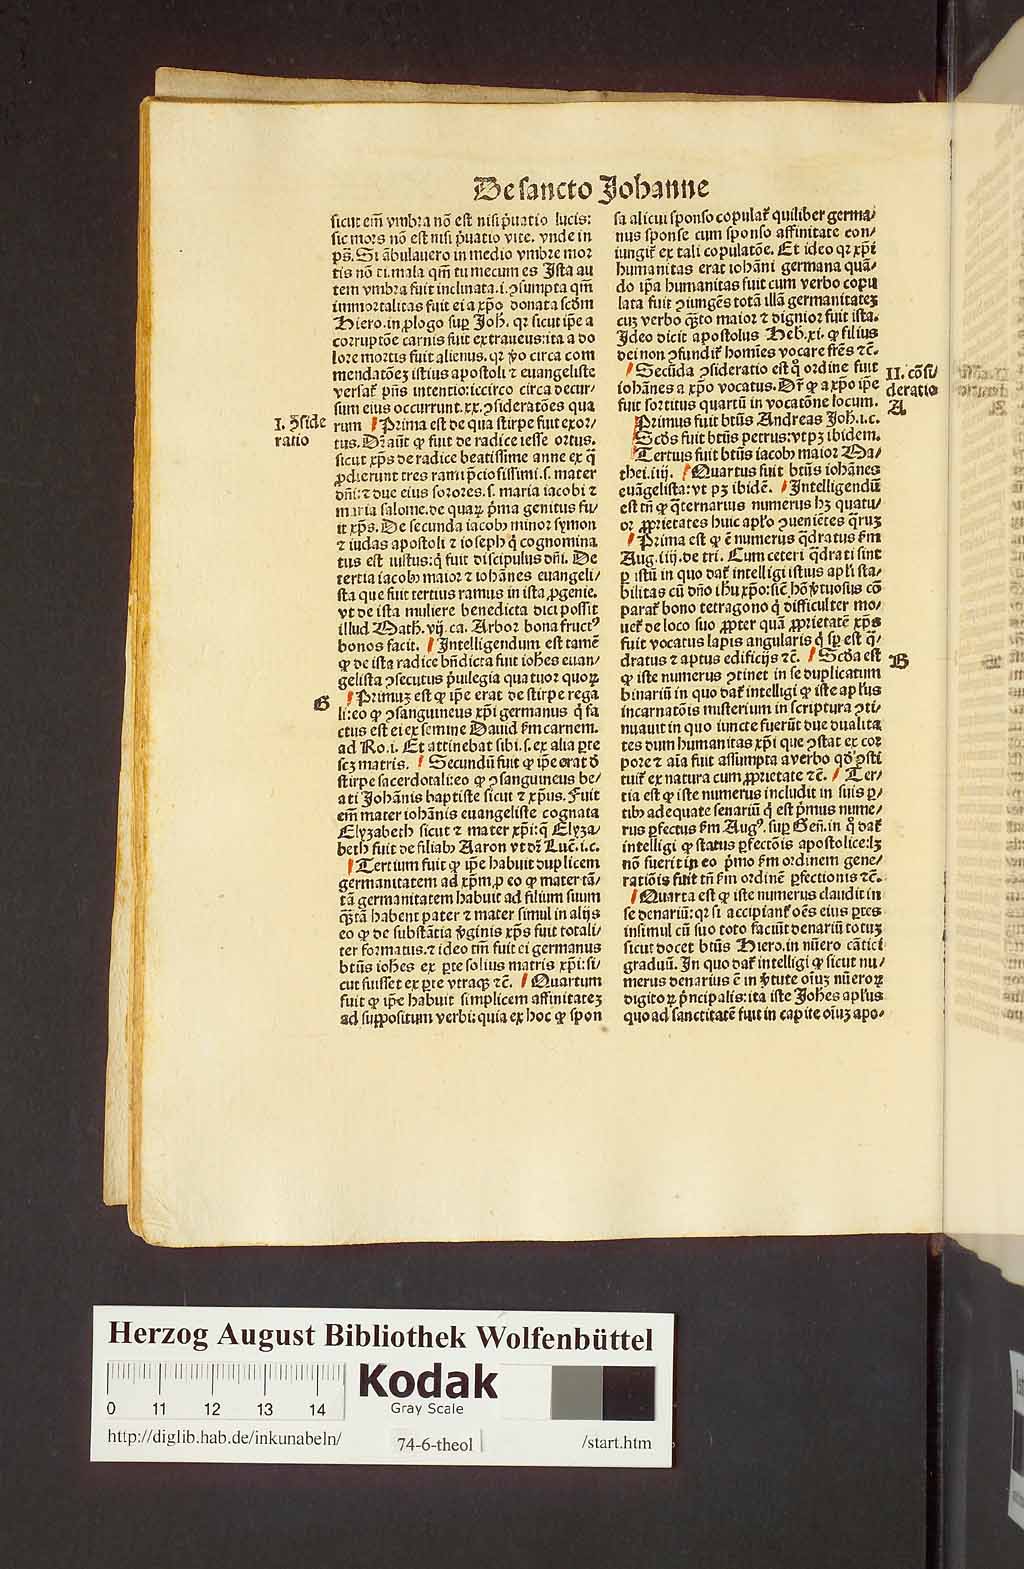 De sancto Johanne
sicut em̄ vmbra nō est nisi p̱uatio lucis:
sic mors nō est nisi p̱uatio vite. vnde in
ps̄. Si ābulauero in medio vmbre mor
tis nō ti. mala qm̄ tu mecum es Ista au
tem vmbra fuit inclinata .i. ꝯsumpta qm̄
immortalitas fuit ei a xp̄o donata scd̄m
Hiero. in ꝓlogo suꝑ Joh. qꝛ sicut ip̄e a
corruptōe carnis fuit extraneus: ita a do
lore mortis fuit alienus. qꝛ ṽo circa com
mendatōeꝫ istius apostoli ⁊ euangeliste
versat᷑ pn̄s intentio: iccirco circa decur⸗
sum eius occurrunt .xx. ꝯsideratōes qua
I. ꝯ̄side
ratio
rum Prima est de qua stirpe fuit exor⸗
tus. Dꝛ aūt ꝙ fuit de radice iesse ortus.
sicut xp̄s de radice beatissime anne ex q̄
ꝓdierunt tres rami p̄ciosissimi .s. mater
dn̄i: ⁊ due eius sorores .s. maria iacobi ⁊
maria salome. de quaꝝ pͥma genitus fu⸗
it xp̄s. De secunda iacob᷒ minor symon
⁊ iudas apostoli ⁊ ioseph qͥ cognomina
tus est iustus: qͥ fuit discipulus dn̄i. De
tertia iacob᷒ maior ⁊ iohānes euangeli⸗
sta que fuit tertius ramus in ista ꝓgenie.
vt de ista muliere benedicta dici possit
illud Math. vij. ca. Arbor bona fructꝰ
bonos facit. Intelligendum est tamē
ꝙ de ista radice bn̄dicta fuit ioh̄es euan⸗
gelista ꝯsecutus pͥuilegia quatuor quoꝝ
G
Primuꝫ est ꝙ ip̄e erat de stirpe rega
li: eo ꝙ ꝯsanguineus xp̄i germanus qͥ fa
ctus est ei ex semine Dauid s̄m carnem.
ad Ro. i. Et attinebat sibi .s. ex alia ꝑte
scꝫ matris. Secundū fuit ꝙ ip̄e erat d̄
stirpe sacerdotali: eo ꝙ ꝯsanguineus be⸗
ati Johānis baptiste sicut ⁊ xp̄us. Fuit
em̄ mater iohānis euangeliste cognata
Elyzabeth sicut ⁊ mater xp̄i: q̄ Elyza⸗
beth fuit de filiab᷒ Aaron vt dꝛ Luc̄. i. c.
Tertium fuit ꝙ ip̄e habuit duplicem
germanitatem ad xp̄m, ꝑ eo ꝙ mater tā⸗
tā germanitatem habuit ad filium suum
q̄ꝫtā habent pater ⁊ mater simul in alijs
eo ꝙ de substātia ṽginis xp̄s fuit totali⸗
ter formatus. ⁊ ideo tm̄ fuit ei germanus
btūs ioh̄es ex ꝑte solius matris xp̄i: si⸗
cut fuisset ex ꝑte vtraqꝫ ⁊c̄. Quartum
fuit ꝙ ip̄e habuit simplicem affinitateꝫ
ad suppositum verbi: quia ex hoc ꝙ spon
sa alicui sponso copulat᷑ quiliber germa⸗
nus sponse cum sponso affinitate con⸗
iungit᷑ ex tali copulatōe. Et ideo qꝛ xp̄i
humanitas erat iohāni germana quā⸗
do ip̄a humanitas fuit cum verbo copu
lata fuit ꝯiungēs totā illā germanitateꝫ
cuꝫ verbo q̄ꝫto maior ⁊ dignior fuit ista.
Ideo dicit apostolus Heb. xi. ꝙ filius
dei non ꝯfundit᷑ homīes vocare fr̄es ⁊c̄.
II. cōsi⸗
deratio
A
Secūda ꝯsideratio est qͦ ordine fuit
iohānes a xp̄o vocatus. Dꝛ ꝙ a xp̄o ip̄e
fuit sortitus quartū in vocatōne locum.
Primus fuit btūs Andreas Joh. i. c.
Scd̄s fuit btūs petrus: vt pꝫ ibidem.
Tertius fuit btūs iacob᷒ maior Ma⸗
thei. iiij. Quartus fuit btūs iohānes
euāgelista: vt pꝫ ibidē. Intelligendū
est tn̄ ꝙ q̄ternarius numerus hꝫ quatu⸗
or ꝓprietates huic apl̄o ꝯueniētes q̄ruꝫ
Prima est ꝙ ē numerus q̄dratus s̄m
Aug. iiij. de tri. Cum ceteri q̄drati sint
ꝑ istū in quo dat᷑ intelligi istius apl̄i sta⸗
bilitas cū dn̄o ih̄u xp̄o: sic̄ hō ṽtuosus cō
parat᷑ bono tetragono qͥ difficulter mo⸗
uet᷑ de loco suo ꝓpter quā ꝓprietatē xp̄s
fuit vocatus lapis angularis qͥ sꝑ est q̄⸗
dratus ⁊ aptus edificijs ⁊c̄. Scd̄a est
B
ꝙ iste numerus ꝯtinet in se duplicatum
binariū in quo dat᷑ intelligi ꝙ iste apl̄us
incarnatōis misterium in scriptura ꝯti⸗
nuauit in quo iuncte fuerūt due dualita
tes dum humanitas xp̄i que ꝯstat ex cor
pore ⁊ aīa fuit assumpta a verbo qd̄ ꝯsti
tuit᷑ ex natura cum ꝓprietate ⁊c̄. Ter⸗
tia est ꝙ iste numerus includit in suis ꝑ⸗
tib᷒ adequate senariū qͥ est pͥmus nume⸗
rus ꝑfectus s̄m Augꝰ. suꝑ Gen̄. in qͦ dat᷑
intelligi ꝙ status ꝑfectōis apostolice: lꝫ
nō fuerit in eo pͥmo s̄m ordinem gene⸗
ratiōis fuit tn̄ s̄m ordinē ꝑfectionis ⁊c̄.
Quarta est ꝙ iste numerus claudit in
se denariū: qꝛ si accipiant᷑ oēs eius ꝑtes
insimul cū suo toto faciūt denariū totuꝫ
sicut docet btūs Hiero. in nūero cātici
graduū. In quo dat᷑ intelligi ꝙ sicut nu⸗
merus denarius ē in ṽtute oīuꝫ nūeroꝝ
digitoꝝ pͥncipalis: ita iste Joh̄es apl̄us
quo ad sanctitatē fuit in capite oīuꝫ apo⸗
Herzog August Bibliothek Wolfenbüttel
0 11 12 13 14
Kodak
Gray Scale
http://diglib.hab.de/inkunabeln/ 74-6-theol /start.htm